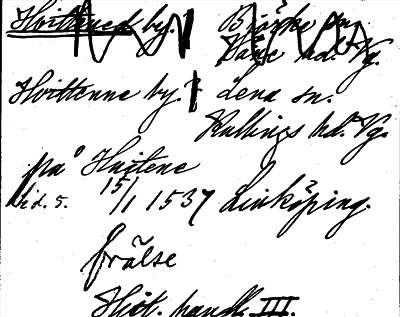 Hvittened by. Bjärke sn.
Väne hd. Vg.
Hvittenne by. Lena sn.
Kullings hd. Vg.
på Huitene
hd. s. 15/1 1537 Linköping.
frälse
Hist. handl. III.